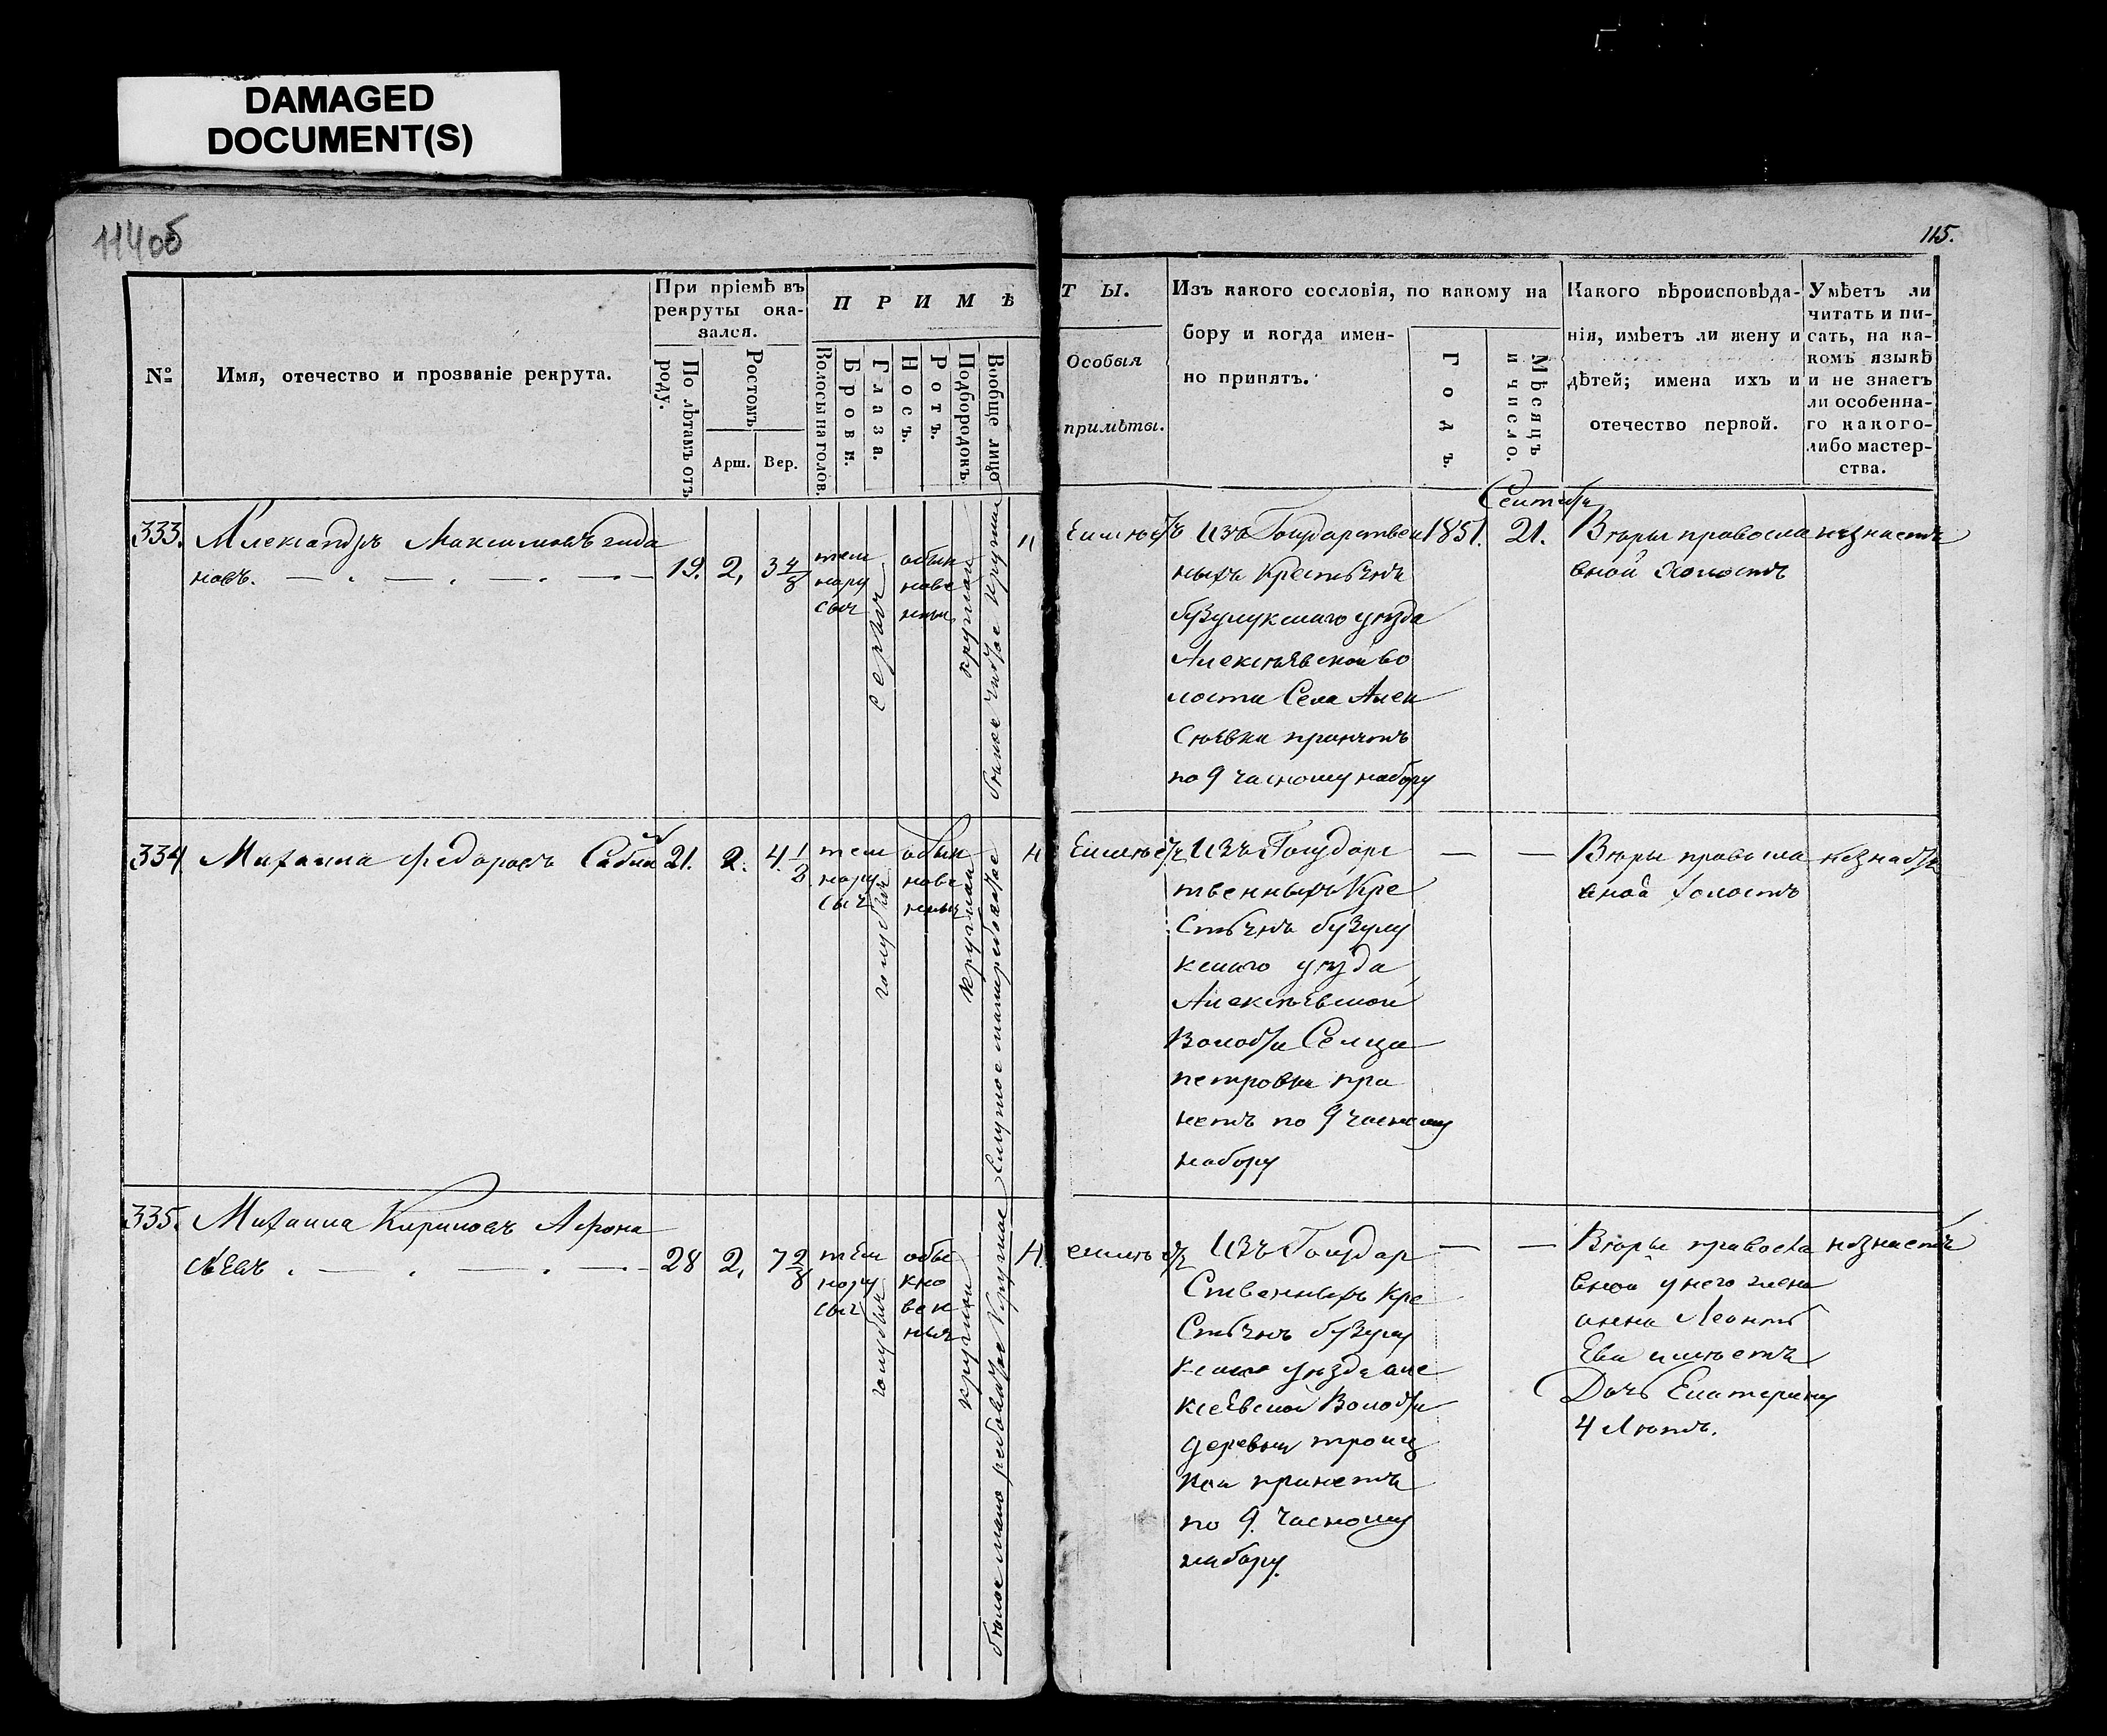 DAMAGED
DOCUMENT(S)
114об
115.
№
Имя, отечество и прозваніе рекрута.
При пріемѣ въ
рекруты ока-
зался.
По лѣтамъ отъ
роду.
Ростомъ
Арш.
Вер.
П Р И М Ѣ
Волосы на голов.
Брови.
Глаза.
Носъ.
Ротъ.
Подбородокъ
Вообще лицо
Т Ы.
Особыя
примѣты.
Изъ какого сословія, по какому на
бору и когда имен-
но принятъ.
Годъ.
Мѣсяцъ
и число.
Какого вѣроисповѣда-
нія, имѣетъ ли жену и
дѣтей; имена ихъ и
отечество первой.
Умѣетъ ли
читать и пи-
сать, на ка-
комъ языкѣ
и не знаетъ
ли особенна-
го какого-
либо мастер-
ства.
333.
Александръ Максимовъ
новъ.
19.
2,
3 4/8
тем
нору
сыя
серыя
обык
нове
нныя
круглой
белое чистое круглое
Изъ Государствен
ныхъ Крестьянъ
бузулукскаго уѣзда
Алексѣевской во
лости Села Алек
Сѣевки принятъ
по 9 часному набору
1851.
Сентября
21.
Вѣры правосла
вной холостъ
незнаетъ
334
Михаила Федоровъ
21.
2.
4 1/8
тем
нору
сыя
голубыя
обык
нове
нныя
круглой
Изъ Государс
твенныхъ Кре
Стьянъ бузулу
кскаго уѣзда
Алексѣевской
Волости Сельца
петровки при
нетъ по 9 часному
набору
Вѣры правосла
вной холостъ
незнаетъ
335.
Михаила Кириловъ Афона
сьевъ
28
2,
7 2/8
тем
нору
сыя
голубыя
обы
кно
вен
ныя
круглой
Изъ Государ
Ственныхъ Кре
Стьянъ бузулу
кскаго уѣзда але
ксеевской Волости
деревни троиц
кой принетъ
по 9. Часному
набору.
Вѣры правосла
вной у него жена
анна Леонть
Ева имѣетъ
Дочь Екатерину
4 Лѣтъ.
незнаетъ